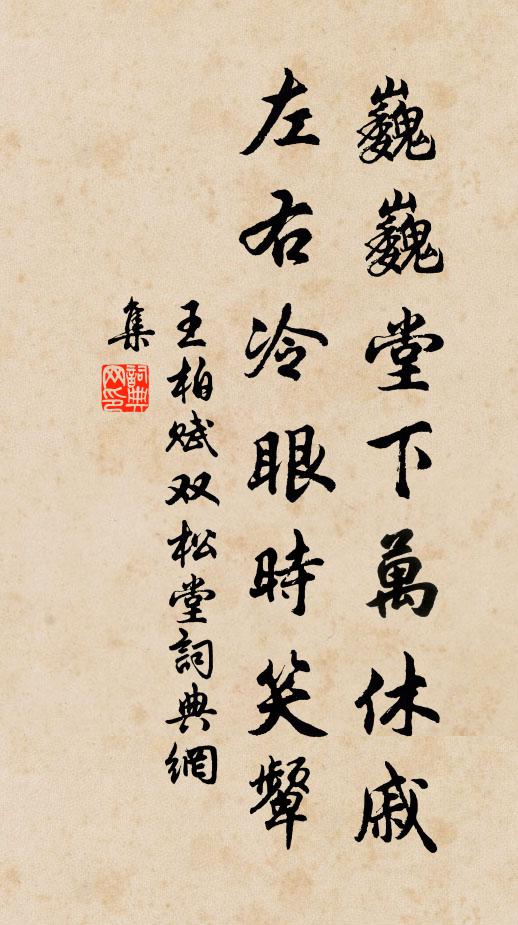 巍巍堂下萬休戚
左右冷眼時笑顰
王柏赋双松堂詞典網
集
詞典网印